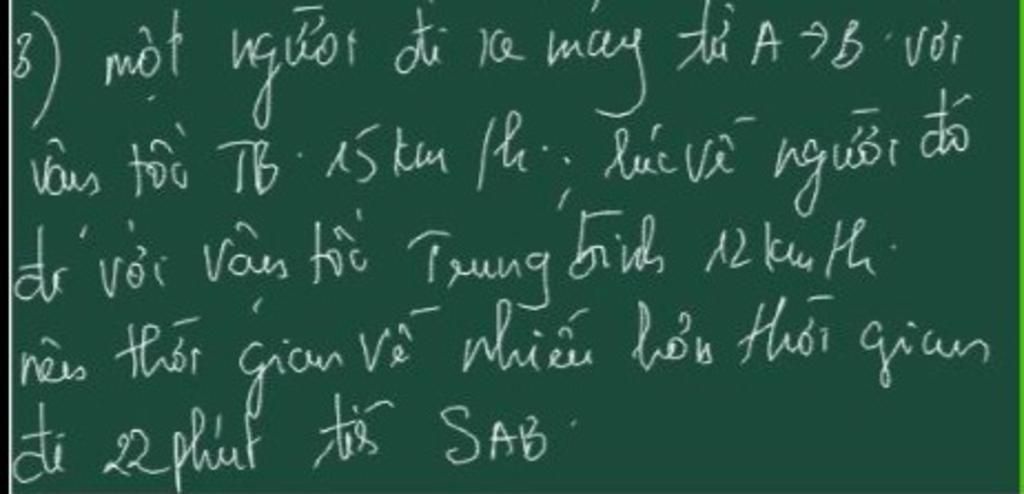 3) một người đi xe máy từ A → B với
vận tốc TB 15 km/h. lúc về người đó
đi với vận tốc Trung bình 12 km/h
nên thời gian về nhiều hơn thời gian
đi 22 phút tính SAB